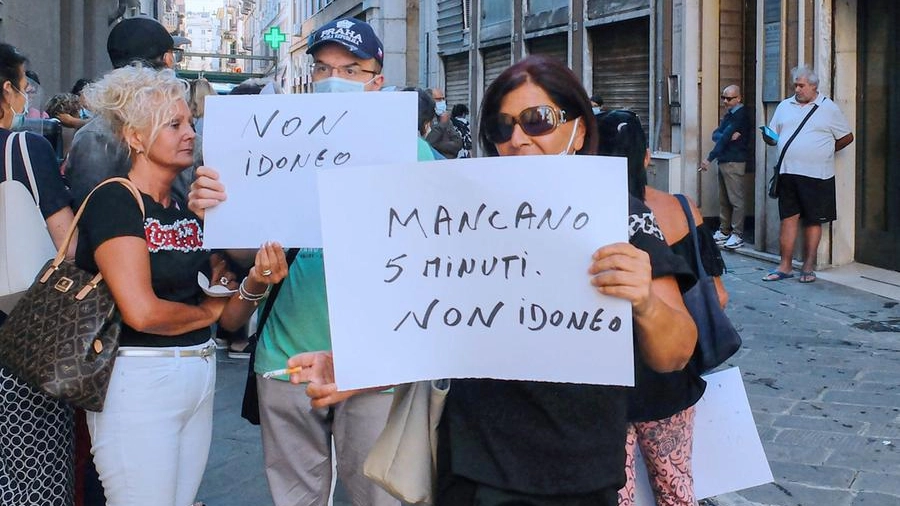 PRAHA
NON
IDONEO
MANCANO
5 MINUTI.
NON IDONEO